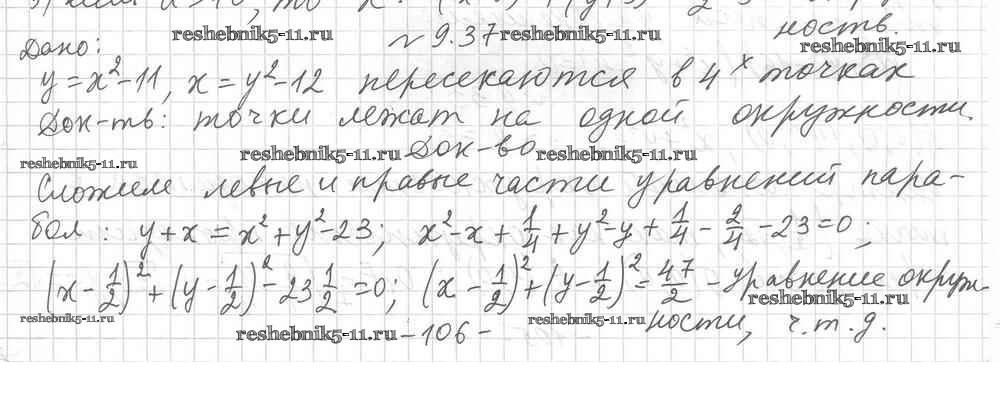 reshebnik5-11.ru № 9.37 reshebnik5-11.ru ность.
Дано: reshebnik5-11.ru
y=x²-11, x=y²-12 пересекаются в 4ˣ точках
Док-ть: точки лежат на одной окружности.
reshebnik5-11.ru reshebnik5-11.ru Док-во reshebnik5-11.ru
Сложим левые и правые части уравнений пара-
бол: y+x=x²+y²-23; x²-x+1/4+y²-y+1/4-2/4-23=0;
(x-1/2)²+(y-1/2)²-23 1/2=0; (x-1/2)²+(y-1/2)²=47/2 - уравнение окруж-
reshebnik5-11.ru
reshebnik5-11.ru reshebnik5-11.ru -106- reshebnik5-11.ru ности, ч.т.д.